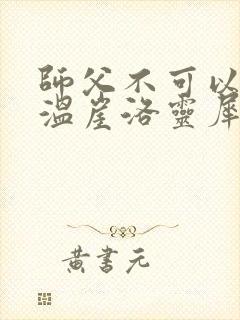 師父不可以
溫崖洛靈犀
黃書元